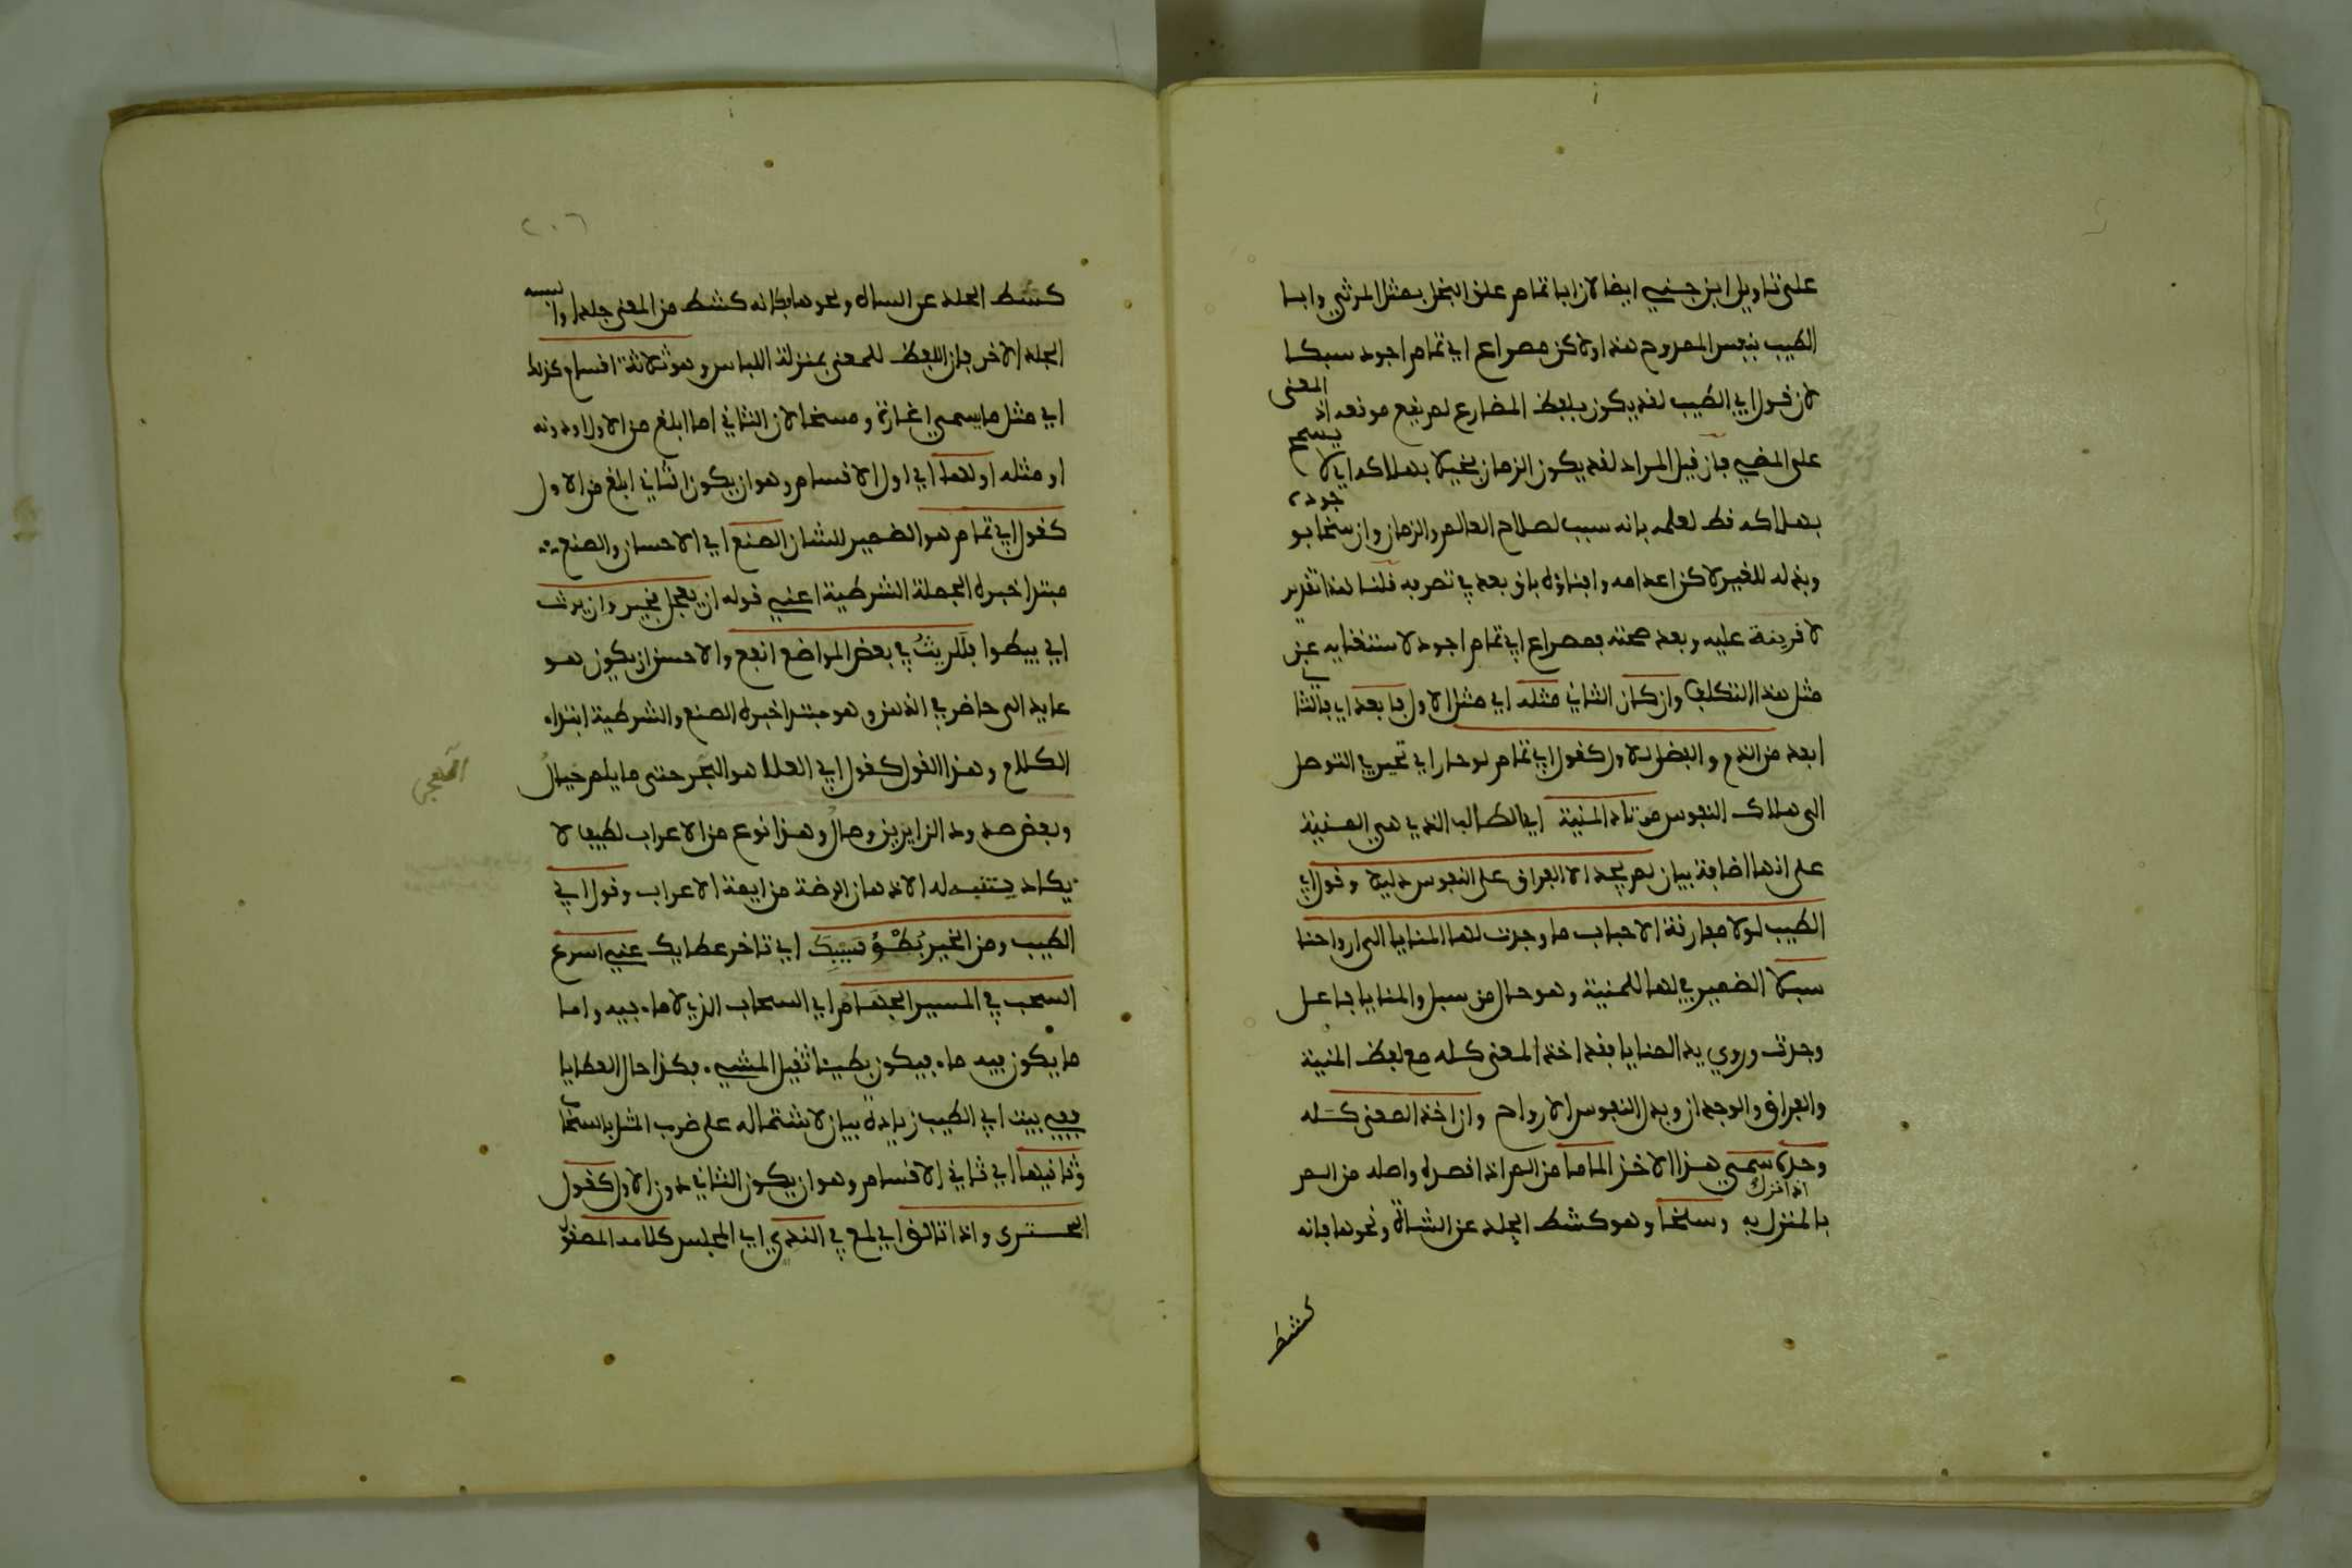 على تاويل ابن جنى ايضا لان ابا تمام علق البخل بمثل المرثي وابا
الطيب بنفس الممدوح هذا ولاكن مصراع ابي تمام اجود سبكا
لان قول ابي الطيب لقد يكون بلفظ المضارع لم يقع موقعه اذ المعنى
على المضي فان قيل المراد لقد يكون الزمان بخيلا بهلاكه اي لا يسمح
بهلاكه قط لعلمه بانه سبب لصلاح العالم والزمان وان سخا بوجوده
وبذله للغير لاكن اعدامه وافناؤه باق بعد في تصرفه قلنا هذا تقرير
لا قرينة عليه وبعد صحته فمصراع ابي تمام اجود لاستغنايه عن
مثل هذا التكلف وان كان الثاني مثله اي مثل الاول فابعد اي فالثاني
ابعد من الذم والفضل للاول كقول ابي تمام لو حار اي تحير في التوصل
الى هلاك النفوس مرتاد المنية اي الطالب الذي هي المنية
على انها اضافة بيان لم يجد الا الفراق على النفوس دليلا وقول ابي
الطيب لولا مفارقة الاحباب ما وجدت لها المنايا الى ارواحنا
سبلا الضمير في لها للمنية وهو حال من سبل والمنايا فاعل
وجدت وروي يد المنايا فقد اخذ المعنى كله مع لفظ المنية
والفراق والوجدان وبدل النفوس الارواح وان اخذ المعنى كله
وحده سمي هذا الاخذ الماما من الم اذا قصد واصله من الم
بالمنزل به اذا نزل وسلخا وهو كشط الجلد عن الشاة ونحوها فانه
كشط
٢٠٦
كشط الجلد عن الشاة ونحوها فكانه كشط من المعنى جلدا والبسه
الجلد الاخر فان اللفظ للمعنى بمنزلة اللباس وهو ثلاثة اقسام كذلك
اي مثل ما يسمى اغارة ومسخا لان الثاني اما ابلغ من الاول او دونه
او مثله اولها اي اول الاقسام وهو ان يكون الثاني ابلغ من الاول
كقول ابي تمام هو الضمير للشان الصنع اي الاحسان والصنع
مبتدا خبره الجملة الشرطية اعني قوله ان يعجل فخير وان يرث
اي يبطوا فللريث في بعض المواضع انفع والاحسن ان يكون هو
عايد الى حاضر في الذهن وهو مبتدا خبره الصنع والشرطية ابتداء
الكلام وهذا القول كقول ابي العلا هو الهجر حتى ما يلم خيال
وبعض صدود الزايرين وصال وهذا نوع من الاعراب لطيف لا
يكاد يتنبه له الا الاذهان الرضة من ايمة الاعراب وقول ابي
الطيب ومن الخير بُطْؤُ سَيْبِكَ اي تاخر عطايك عني اسرع
السحب في المسير الجهام اي السحاب الذي لا ماء فيه واما
ما يكون فيه ماء فيكون بطيئا ثقيل المشي فكذا حال العطايا
ففي بيت ابي الطيب زيادة بيان لاشتماله على ضرب المثل بالسحاب
وثانيها اي ثاني الاقسام وهو ان يكون الثاني دون الاول كقول
البحتري واذا تالق اي لمع في الندي اي المجلس كلامه المصقول